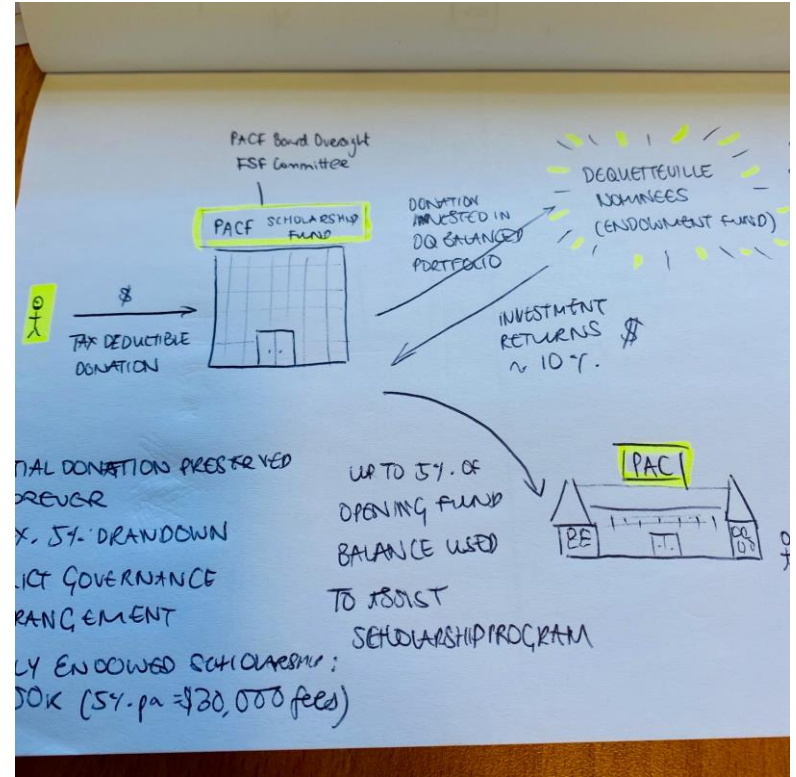 PACF Board Oversight
FSF Committee
PACF SCHOLARSHIP
FUND
$
TAX DEDUCTIBLE
DONATION
DONATION
INVESTED IN
DQ BALANCED
PORTFOLIO
DEQUETTEVILLE
NOMINEES
(ENDOWMENT FUND)
INVESTMENT
RETURNS $
~ 10%.
TIAL DONATION PRESERVED
OREVER
X. 5% DRANDOWN
ICT GOVERNANCE
RANGEMENT
LY ENDOWED SCHOLARSHIP:
00K (5%.pa = $30,000 fees)
UP TO 5%. OF
OPENING FUND
BALANCE USED
TO ASSIST
SCHOLARSHIP PROGRAM
PAC